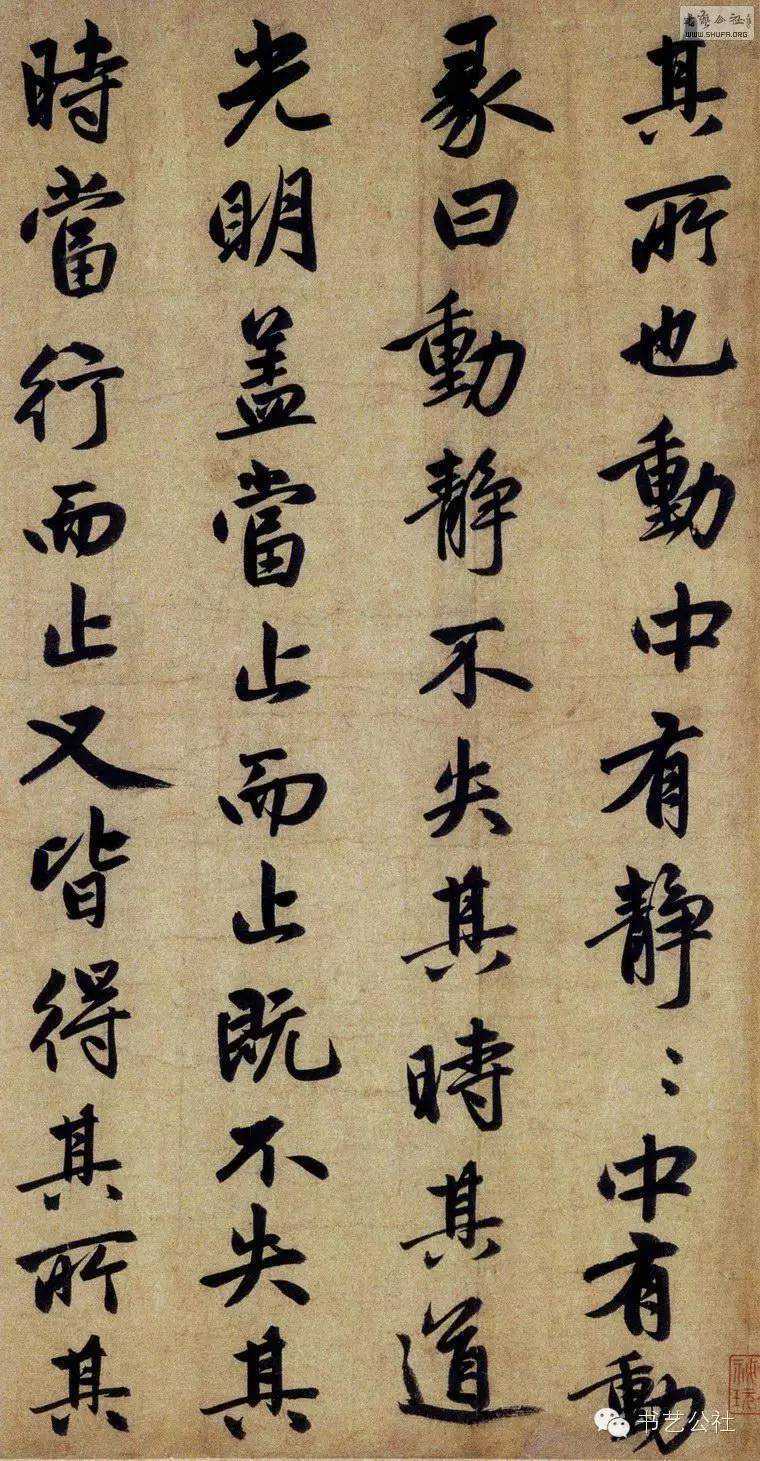 其所也動中有靜〻中有動
彖曰動靜不失其時其道
光明盖當止而止既不失其
時當行而止又皆得其所其
WWW.SHUFA.ORG
书艺公社